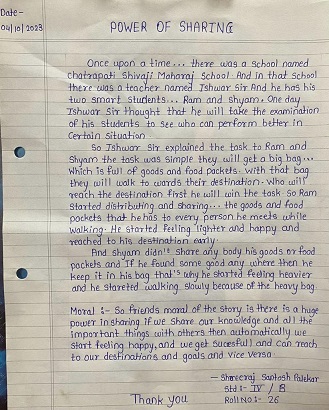 Date-
04/10/2023
POWER OF SHARING
Once upon a time... there was a school named
chatrapati Shivaji Maharaj School And in that School
there was a teacher named Ishwar Sir And he has his
two smart students... Ram and Shyam. One day
Ishwar Sir thought that he will take the examination
of his students to see who can perform better in
Certain Situation
So Ishwar Sir explained the task to Ram and
Shyam the task was simple they will get a big bag...
Which is full of goods and food packets. With that bag
they will walk to wards their destination. Who will
reach the destination first he will win the task So Ram
Started distributing and sharing... the goods and food
packets that he has to every person he meets while
walking. He started feeling lighter and happy and
reached to his destination early.
And Shyam didn't share any body his goods or food
packets and If he found some good any where then he
keep it in his bag that's why he started feeling heavier
and he stareted walking slowly because of the heavy bag.
Moral :- So friends moral of the story is there is a huge
power in sharing if we share our knowledge and all the
important things with others then automatically we
start feeling happy, and we get sucesfull and can reach
to our destinations and goals and vice versa.
- Shreeraj Santosh Palekar
Std :- IV / B
Thank you
Roll No :- 26